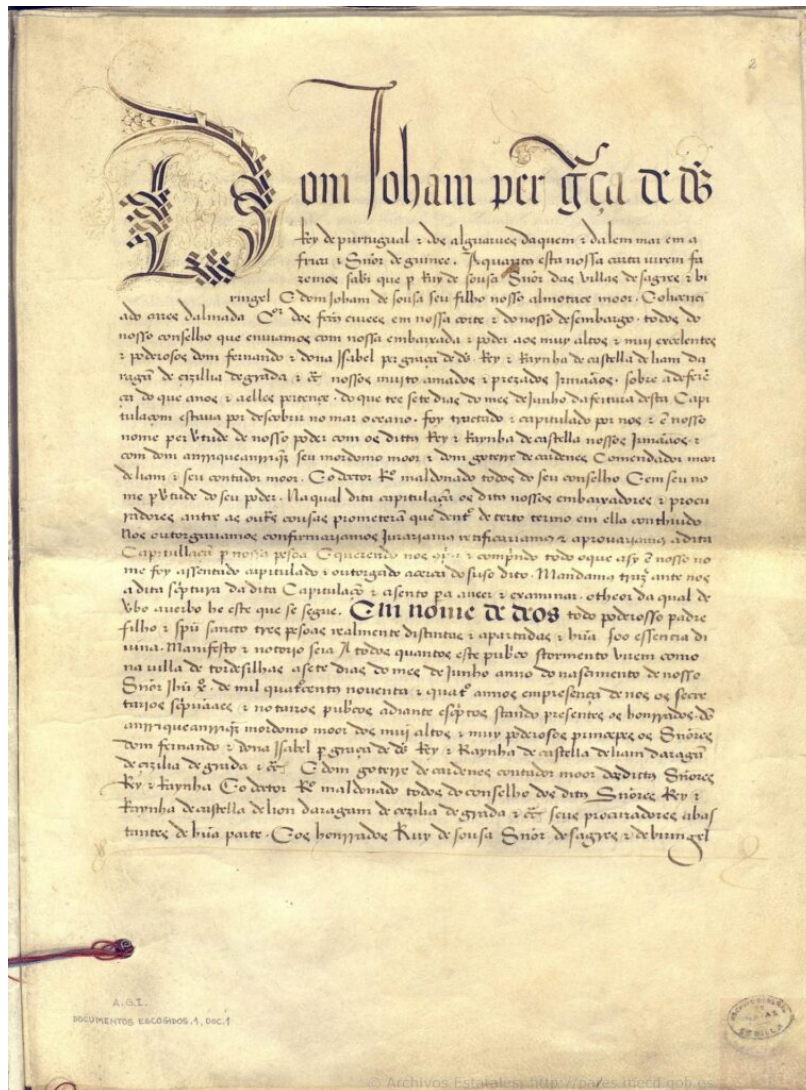 2
Dom Joham per gr̃ça de ds̃
Rey de purtugual & dos alguarues daquem & dalem mar em a
frica & Sñor de guinee. A quantos esta nossa carta virem fa
zemos saber que per Ruy de sousa Sñor das villas de sagres & bi
ringel E dom Joham de sousa seu filho nosso almotace moor. E o licenci
ado aires dalmada Cor. dos feitos ciuees em nossa corte & do nosso desembargo. todos do
nosso conselho que enuiamos com nossa embaixada & poder aos muy altos & muy excelentes
& poderosos dom fernando & dona Isabel per graça de ds̃. Rey & Raynha de castella de liam da
ragã de cizillia de grãda & c̃t nossos muito amados & prezados Irmãaos. sobre a deferẽ
ça do que a nos & a elles pertence. do que tee sete dias do mes de Junho da feitura desta Capi
tulaçom estaua por descobrir no mar oceano. foy tractado & capitulado por nos & ẽ nosso
nome per vtude de nosso poder com os dittos Rey & Raynha de castella nossos Irmãaos. &
com dom anrrique anrriqz̃ seu mordomo moor & dom goterre de cardenes Comendador moor
de liam & seu contador moor. E o doctor Ro maldonado todos do seu conselho E em seu no
me p vtude do seu poder. Na qual dita capitulaçã os ditos nossos embaixadores & procu
radores antre as outras cousas prometerã que dentro de certo termo em ella conthiudo
Nos outorgariamos confirmariamos Jurariamos retificariamos & aprouariamos a dita
Capitullaçã p nossa pesoa E querendo nos & comprindo todo o que asy ẽ nosso no
me foy assentado capitulado & outorgado acerca do suso dito. Mandamos trazer ante nos
a dita scriptura da dita Capitulaçõ & asento pa a veer & examinar. o theor da qual de
vbo a verbo he este que se segue. Em nome de deos todo poderosso padre
filho & spũ sancto tres pesoas realmente distintas & apartadas & hũa soo essencia di
uina. Manifesto & notorio seia A todos quantos este pubrico stormento virem como
na villa de tordesilhas a sete dias do mes de Junho anno do nascimento de nosso
Sñor Jhũ x̃. de mil quatrocentos nouenta & quatro annos em presença de nos os secre
tarios scripuaaes & notarios pubricos adiante escriptos stando presentes os honrrados. dõ
anrrique anrriqz̃ mordomo moor dos muj altos & muy poderosos principes os Sñores
dom fernando & dona Isabel p graça de ds̃ Rey & Raynha de castella de liam daragã
de cizilia de grãda & c̃t. E dom goterre de cardenes contador moor dos dittos Sñores
Rey & Raynha E o doctor Ro maldonado todos do conselho dos dittos Sñores Rey &
Raynha de castella de lion daragam de cezilia de grãda & c̃t seus procuradores abas
tantes de hũa parte. E os honrrados Ruy de sousa Sñor de sagres & de biringel
A.G.I.
DOCUMENTOS ESCOGIDOS.1, DOC.1
SEVILLA
© Archivos Estatales, http://pares.mecd.gob.es